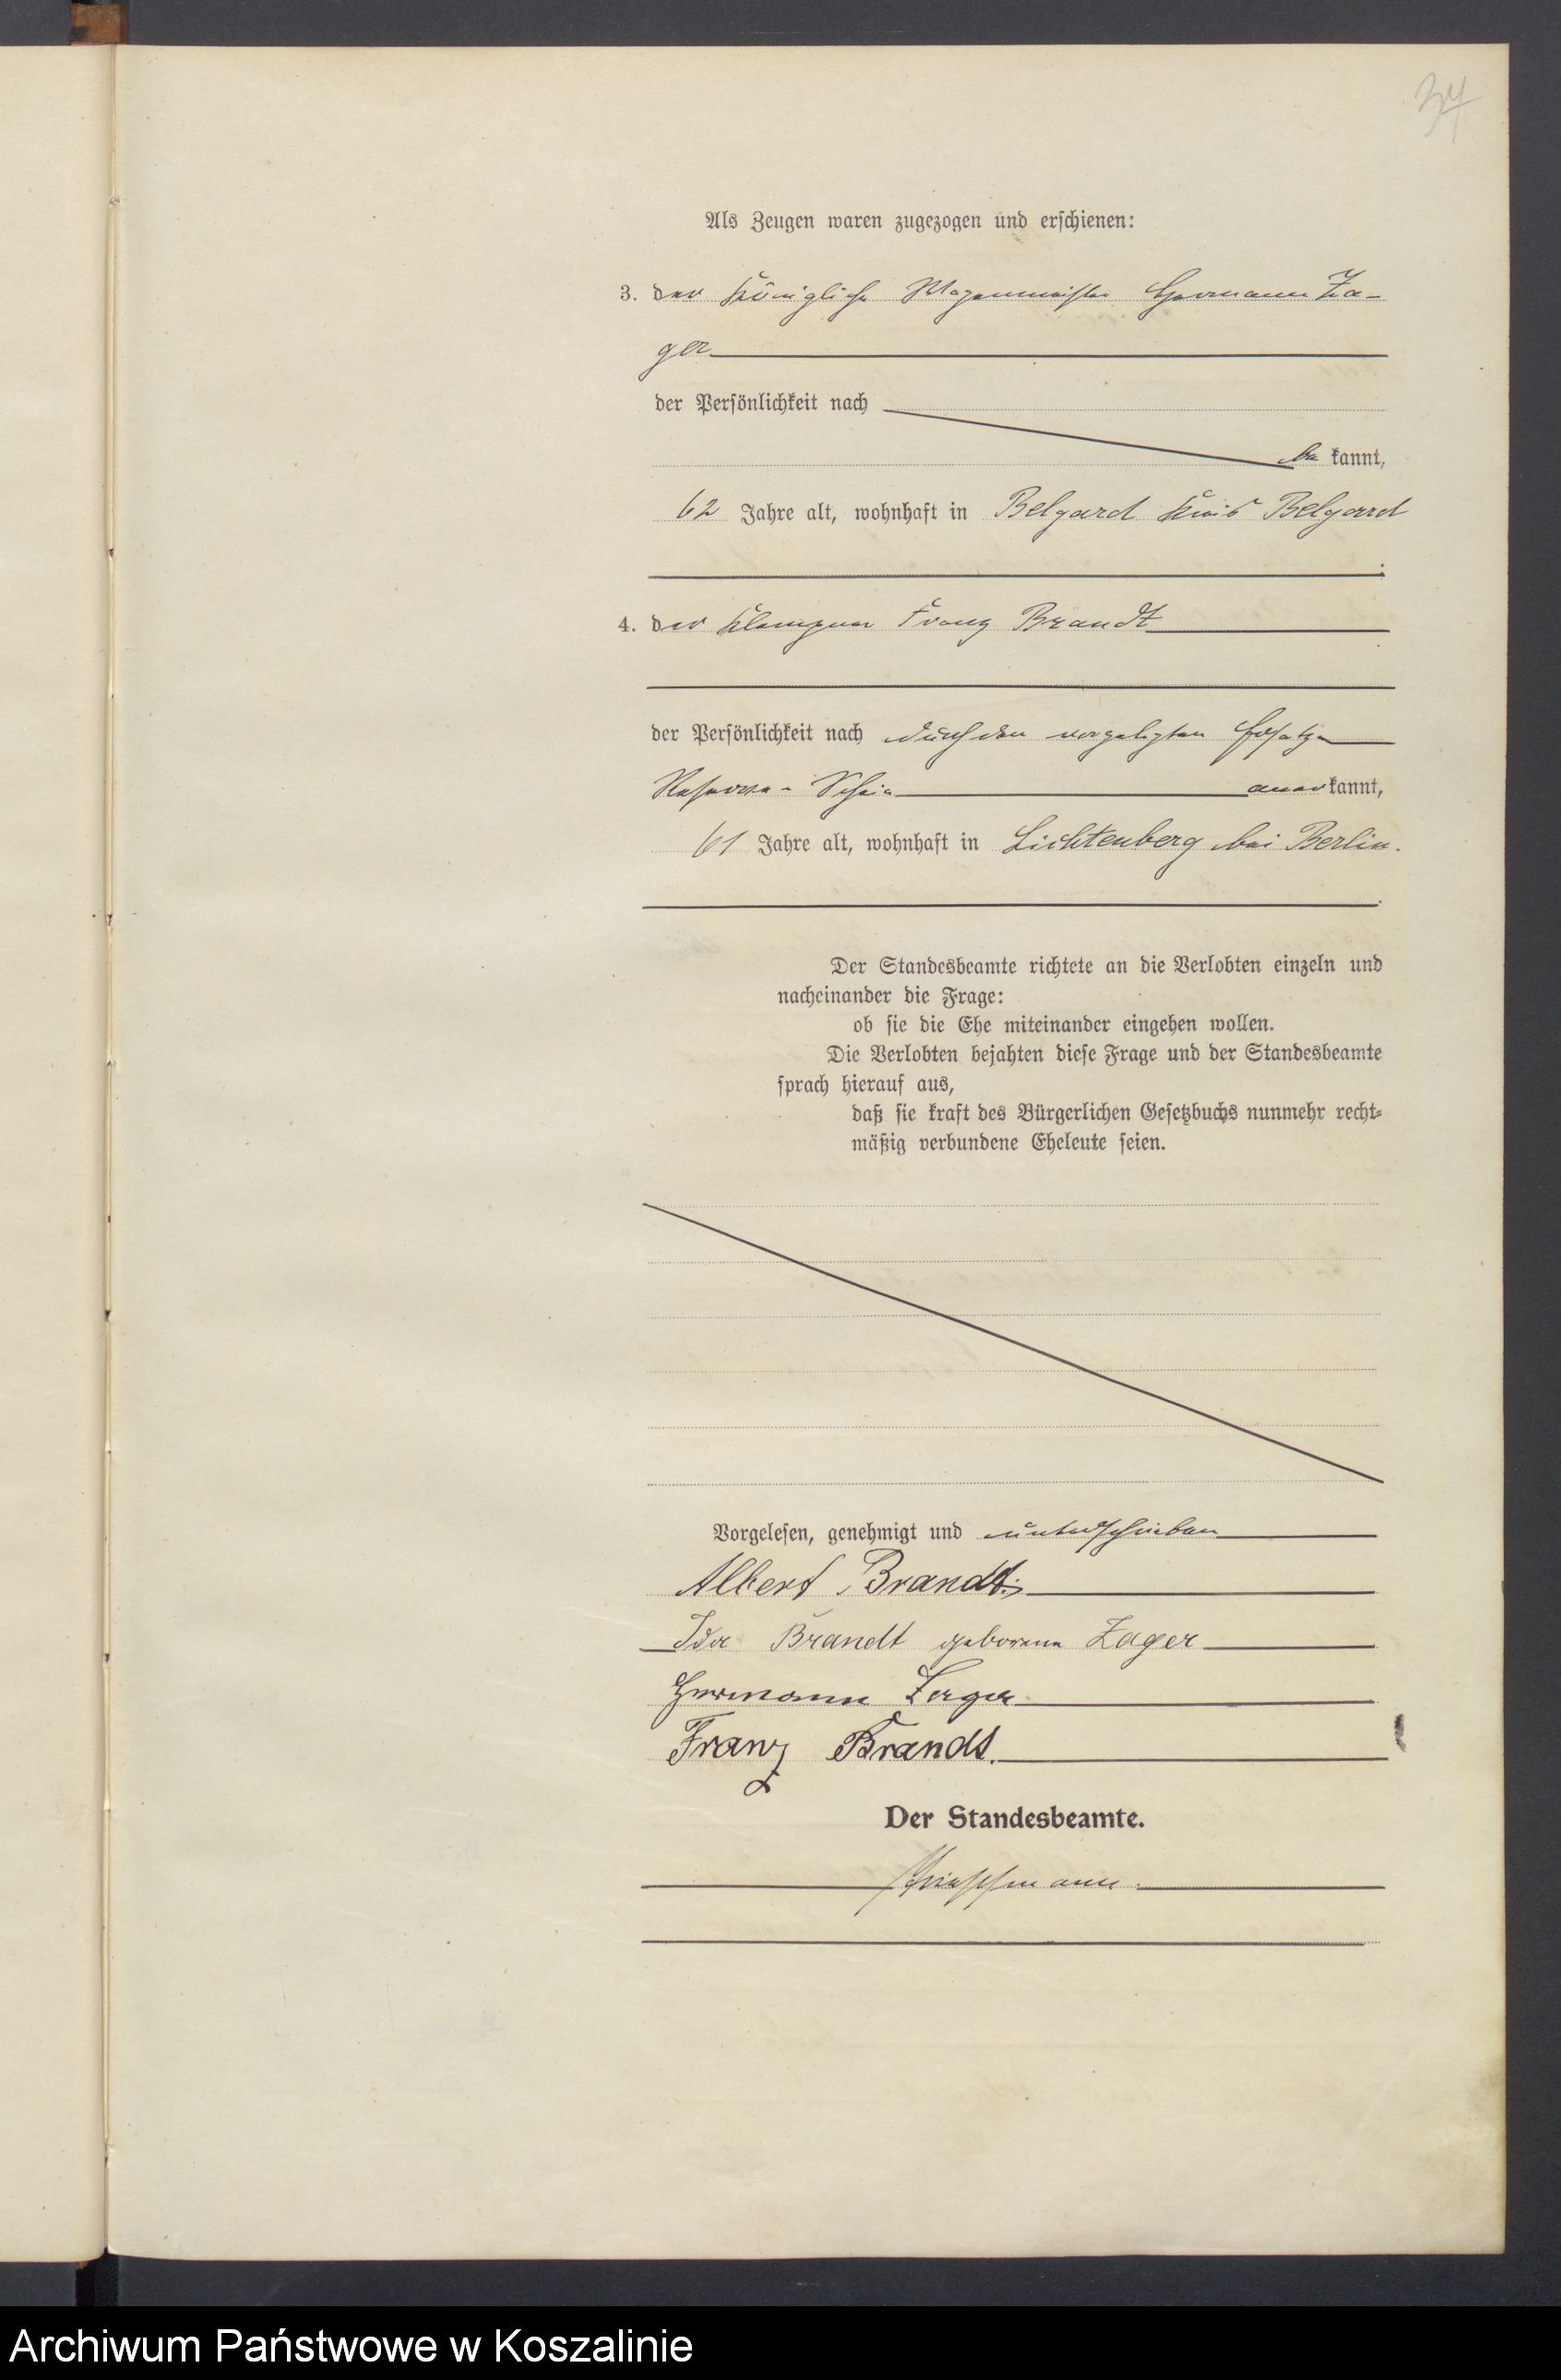 37
Als Zeugen waren zugezogen und erschienen:
3. der Königliche Wagenmeister Hermann Za-
ger
der Persönlichkeit nach
be kannt,
62 Jahre alt, wohnhaft in Belgard Kreis Belgard
4. der Klempner Franz Brandt
der Persönlichkeit nach durch den vorgelegten Ersatz
Reserve-Schein aner kannt,
61 Jahre alt, wohnhaft in Lichtenberg bei Berlin.
Der Standesbeamte richtete an die Verlobten einzeln und
nacheinander die Frage:
ob sie die Ehe miteinander eingehen wollen.
Die Verlobten bejahten diese Frage und der Standesbeamte
sprach hierauf aus,
daß sie kraft des Bürgerlichen Gesetzbuchs nunmehr recht-
mäßig verbundene Eheleute seien.
Vorgelesen, genehmigt und unterschrieben
Albert Brandt
Ida Brandt geborene Zager
Hermann Zager
Franz Brandt.
Der Standesbeamte.
Archiwum Państwowe w Koszalinie